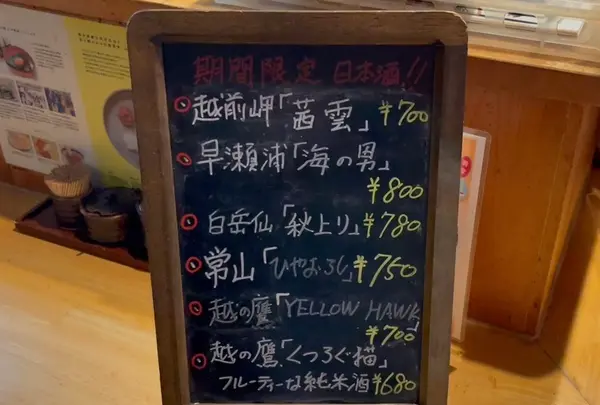 期間限定 日本酒!!
越前岬「茜雲」¥700
早瀬浦「海の男」
¥800
白岳仙「秋上り」¥780
常山「ひやおろし」¥750
越の鷹「YELLOW HAWK」
¥700
越の鷹「くつろぐ猫」
フルーティーな純米酒¥680